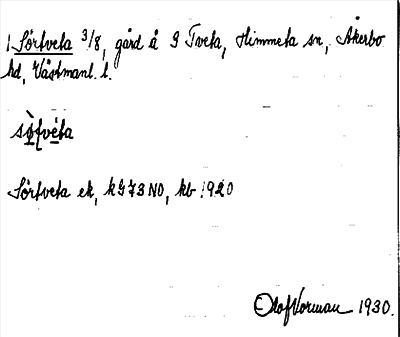 1 Sörtveta 3/8, gård å 9 Tveta, Himmeta sn, Åkerbo
hd, Västmanl. l.
Sörtveta ek, kG73NO, kb 1920
Olof Vorman 1930.